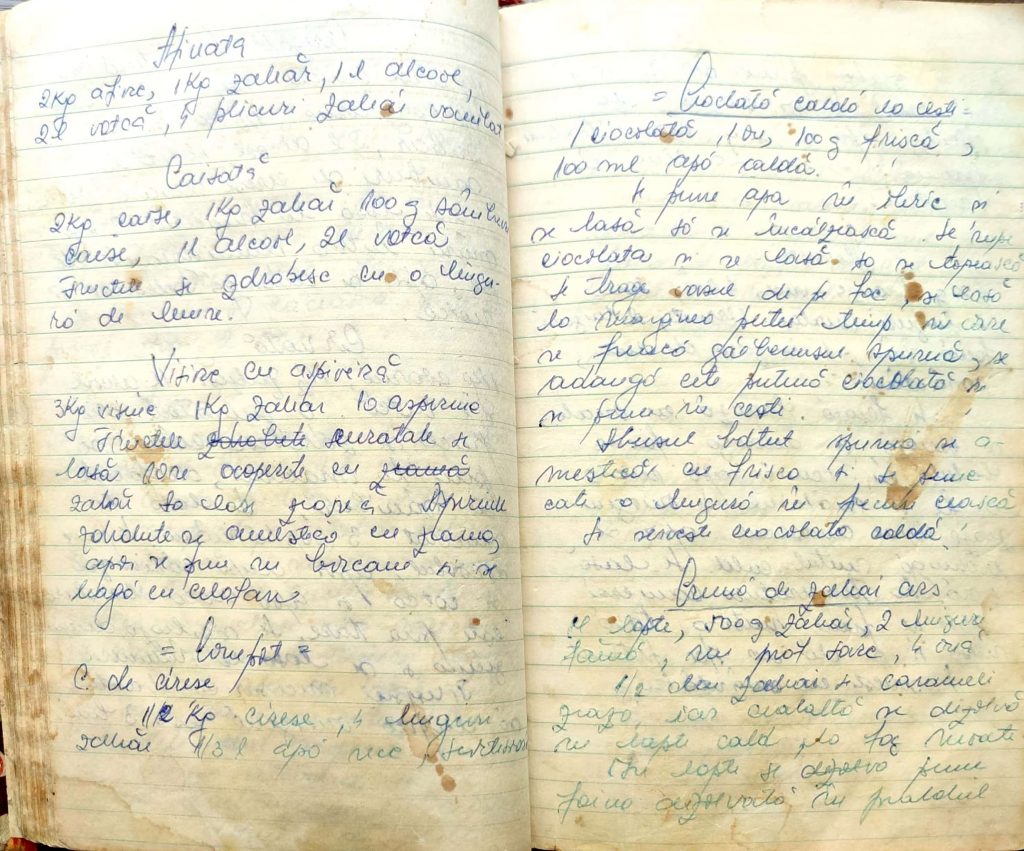 Afinată
2kg afine, 1kg zahăr, 1l alcool,
2l votcă, 4 plicuri zahăr vanilat
Caisată
2kg caise, 1kg zahăr 100g sâmburi
caise, 1l alcool, 2l votcă
Fructele se zdrobesc cu o lingu-
ră de lemn.
Vișine cu aspirină
3kg vișine 1kg zahăr 10 aspirine
Fructele zdrobite curatate se
lasă acoperite cu zeamă
zahăr să lase zeamă Aspirinele
zdrobite se amestecă cu zeama,
apoi se pun în borcane și se
leagă cu celofan
= Compot =
C. de cireșe
1/2 kg cireșe, 4 linguri
zahăr 1/3 l apă rece,
= Ciocolată caldă la cești =
1 ciocolată, 1 ou, 100 g frișcă,
100 ml apă caldă.
Se pune apa în ibric și
se lasă să se încălzească. Se rupe
ciocolata și se lasă să se topească
Se trage vasul de pe foc, se lasă
la marginea puțin timp în care
se freacă gălbenușul spumă, se
adaugă cîte puțină ciocolată și
se pune în cești.
Albușul bătut spumă se a-
mestică cu frișca și se pune
cate o lingură în fiecare ceașcă
Se servește ciocolata caldă.
Cremă de zahăr ars
1l lapte, 500g zahăr, 2 linguri
faină, un praf sare, 4 ouă
1/2 din zahăr se caramel
iar cealaltă se dizolvă
în lapte cald, la foc
În lapte se dizolvă pune
faina dizolvată în prealabil